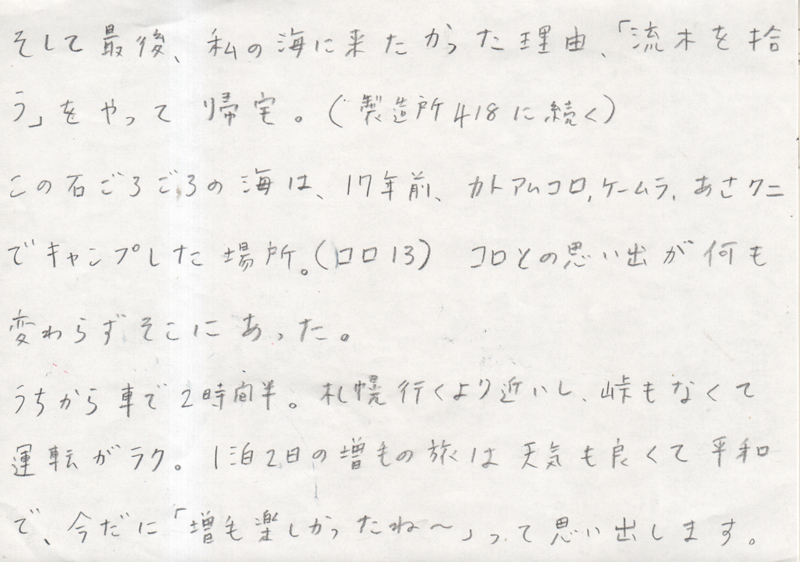 そして最後、私の海に来たかった理由、「流木を拾
う」をやって帰宅。(製造所418に続く)
この石ごろごろの海は、17年前、カトアムコロ,ケームラ,あさクニ
でキャンプした場所。(コロ13) コロとの思い出が何も
変わらずそこにあった。
うちから車で2時間半。札幌行くより近いし、峠もなくて
運転がラク。1泊2日の増毛の旅は天気も良くて平和
で、今だに「増毛楽しかったね〜」って思い出します。